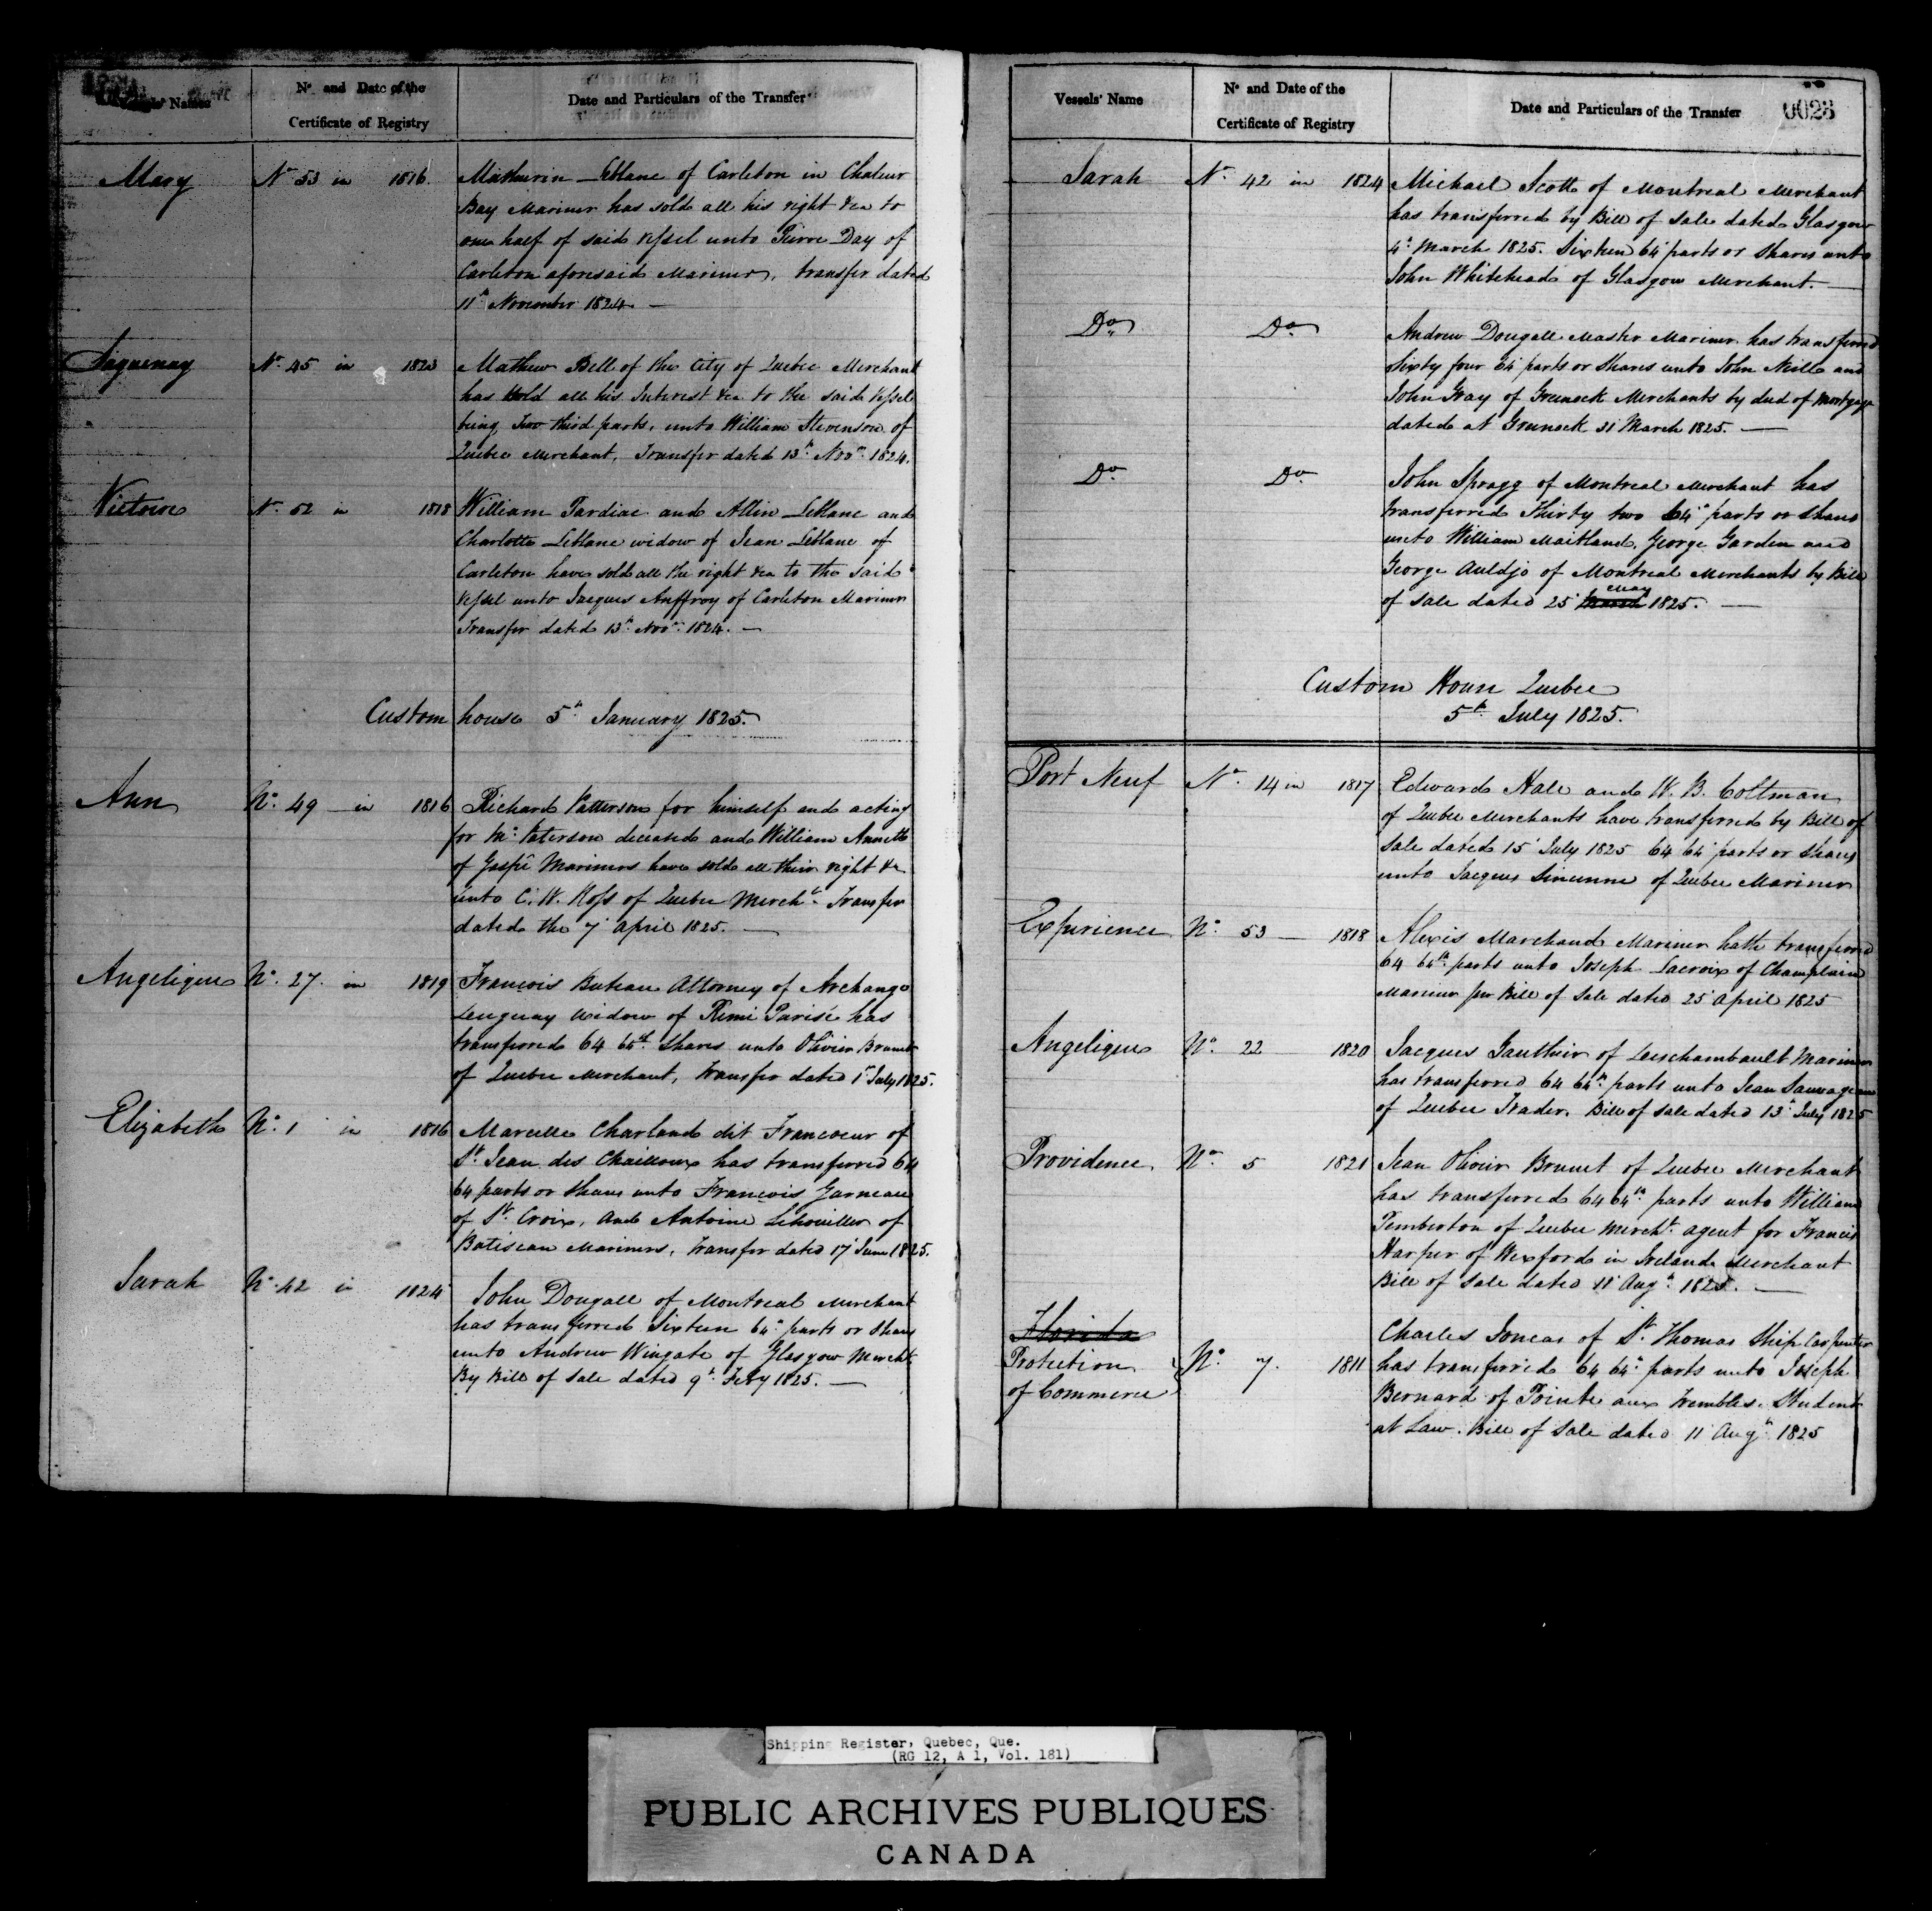 Vessels' Names
No and Date of the
Certificate of Registry
Date and Particulars of the Transfer
Mary No 53 in 1816 Mathurin Leblanc of Carleton in Chaleur
Bay Mariner has sold all his right &ca to
one half of said vessel unto Pierre Day of
Carleton aforesaid Mariner, transfer dated
11th November 1824 —
Saguenay No 45 in 1823 Mathew Bell of the City of Quebec Merchant
has sold all his Interest &ca to the said vessel
being Two third parts, unto William Stevenson of
Quebec Merchant, Transfer dated 13th Novr 1824.
Victoire No 52 in 1818 William Tardiae and Allin Leblanc and
Charlotte Leblanc widow of Jean Leblanc of
Carleton have sold all the right &ca to the said
vessel unto Jacques Auffroy of Carleton Mariner
Transfer dated 13th Novr 1824. —
Custom house 5th January 1825.
Ann No 49 — in 1816 Richard Patterson for himself and acting
for Mr Paterson deceased and William Annett
of Gaspé Mariners have sold all their right &c
unto C. W. Ross of Quebec Mercht Transfer
dated the 7 April 1825. —
Angelique No 27. in 1819 Francois Buteau Attorney of Archange
Lenguay Widow of Remi Parise has
transferred 64 64th Shares unto Olivier Brunet
of Quebec Merchant, Transfer dated 1st July 1825.
Elizabeth No 1 in 1816 Marcelle Charland dit Francoeur of
St Jean des Chaillons has transferred 64
64 parts or Shares unto Francois Garneau
of St Croix, and Antoine Lehouiller of
Batiscan Mariners, Transfer dated 17 June 1825.
Sarah No 42 in 1824 John Dougall of Montreal Merchant
has transferred Sixteen 64th parts or Shares
unto Andrew Wingate of Glasgow Mercht
By Bill of Sale dated 9th Feby 1825. —
Vessels' Name
No and Date of the
Certificate of Registry
Date and Particulars of the Transfer
0028
Sarah No 42 in 1824 Michael Scott of Montreal Merchant
has transferred by Bill of Sale dated Glasgow
4th March 1825. Sixteen 64 parts or Shares unto
John Whitehead of Glasgow Merchant. —
Do Do Andrew Dougall Master Mariner has transferred
Sixty four 64 parts or Shares unto John Neill and
John Gray of Greenock Merchants by deed of Mortgage
dated at Greenock 31 March 1825. —
Do Do John Spragg of Montreal Merchant has
transferred Thirty two 64th parts or Shares
unto William Maitland, George Garden and
George Auldjo of Montreal Merchants by Bill
of Sale dated 25 March May 1825. —
Custom House Quebec
5th July 1825.
Port Neuf No 14 in 1817 Edward Hale and W. B. Coltman
of Quebec Merchants have transferred by Bill of
Sale dated 15 July 1825 64 64 parts or Shares
unto Jacques Sincennes of Quebec Mariner
Experience No 53 — 1818 Alexis Marchand Mariner hath transferred
64 64th parts unto Joseph Lacroix of Champlain
Mariner per Bill of Sale dated 25 April 1825
Angelique No 22 1820 Jacques Gauthier of Deschambault Mariner
has transferred 64 64th parts unto Jean Sauvageau
of Quebec Trader. Bill of Sale dated 13th July 1825
Providence No 5 1821 Jean Olivier Brunet of Quebec Merchant
has transferred 64 64th parts unto William
Pemberton of Quebec Mercht agent for Francis
Harper of Wexford in Ireland Merchant
Bill of Sale dated 11 Augt 1825. —
Florida
Protection
of Commerce No 7. 1811 Charles Joncas of St Thomas Ship Carpenter
has transferred 64 64th parts unto Joseph
Bernard of Pointe aux Trembles. Student
at Law. Bill of Sale dated 11 Augt 1825
Shipping Register, Quebec, Que.
(RG 12, A 1, Vol. 181)
PUBLIC ARCHIVES PUBLIQUES
CANADA